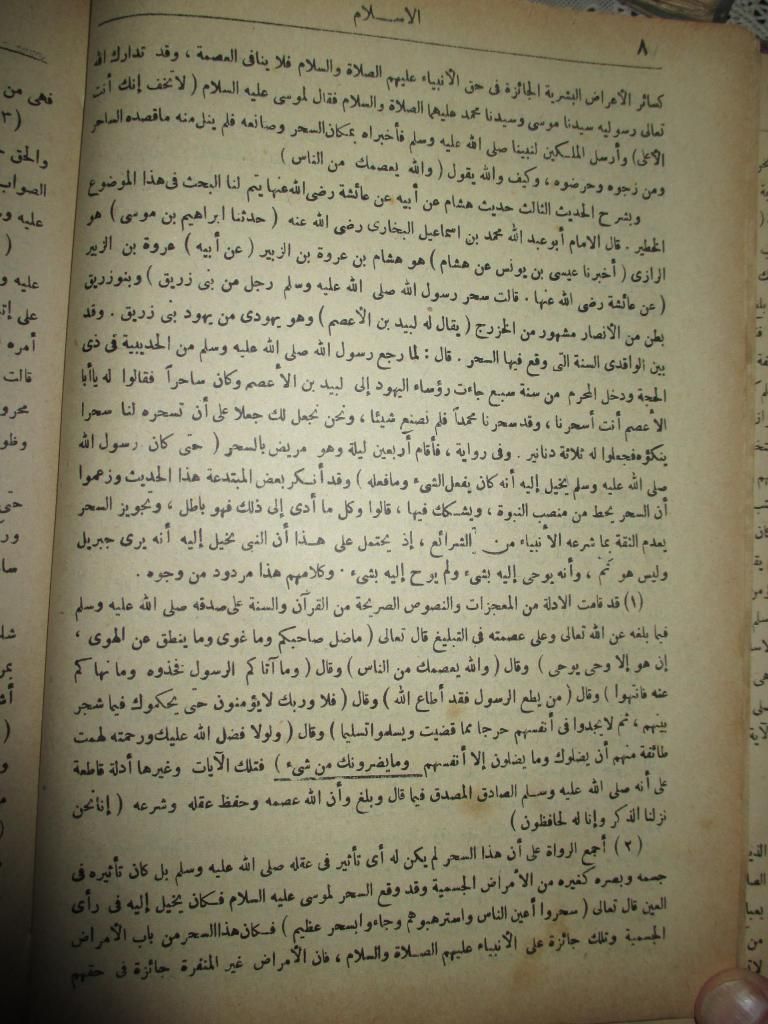 الاسلام
٨
كسائر الأعراض البشرية الجائزة فى حق الأنبياء عليهم الصلاة والسلام فلا ينافى العصمة ، وقد تدارك الله
تعالى رسوليه سيدنا موسى وسيدنا محمد عليهما الصلاة والسلام فقال لموسى عليه السلام ( لا تخف إنك أنت
الأعلى ) وأرسل الملكين لنبينا صلى الله عليه وسلم فأخبراه بمكان السحر وصانعه فلم ينل منه ماقصده الساحر
ومن زجوه وحرضوه ، وكيف والله يقول ( والله يعصمك من الناس )
وبشرح الحديث الثالث حديث هشام عن أبيه عن عائشة رضى الله عنها يتم لنا البحث فى هذا الموضوع
الخطير . قال الامام أبو عبد الله محمد بن اسماعيل البخارى رضى الله عنه ( حدثنا ابراهيم بن موسى ) هو
الرازى ( أخبرنا عيسى بن يونس عن هشام ) هو هشام بن عروة بن الزبير ( عن أبيه ) عروة بن الزبير
( عن عائشة رضى الله عنها . قالت سحر رسول الله صلى الله عليه وسلم رجل من بنى زريق ) وبنوزريق
بطن من الأنصار مشهور من الخزرج ( يقال له لبيد بن الأعصم ) وهو يهودى من يهود بنى زريق . وقد
بين الواقدى السنة التى وقع فيها السحر . قال : لما رجع رسول الله صلى الله عليه وسلم من الحديبية فى ذى
الحجة ودخل المحرم من سنة سبع جاءت رؤساء اليهود إلى لبيد بن الأعصم وكان ساحراً فقالوا له ياأبا
الأعصم أنت أسحرنا ، وقد سحرنا محمداً فلم نصنع شيئا ، ونحن نجعل لك جعلا على أن تسحره لنا سحرا
ينكؤه فجعلوا له ثلاثة دنانير . وفى رواية ، فأقام أربعين ليلة وهو مريض بالسحر ( حتى كان رسول الله
صلى الله عليه وسلم يخيل إليه أنه كان يفعل الشىء ومافعله ) وقد أنكر بعض المبتدعة هذا الحديث وزعموا
أن السحر يحط من منصب النبوة ، ويشكك فيها ، قالوا وكل ما أدى إلى ذلك فهو باطل ، وتجويز السحر
يعدم الثقة بما شرعه الأنبياء من الشرائع ، إذ يحتمل على هذا أن النبى تخيل إليه أنه يرى جبريل
وليس هو ثم ، وأنه يوحى إليه بشىء ولم يوح إليه بشىء . وكلامهم هذا مردود من وجوه .
(١) قد قامت الادلة من المعجزات والنصوص الصريحة من القرآن والسنة على صدقه صلى الله عليه وسلم
فيما بلغه عن الله تعالى وعلى عصمته فى التبليغ قال تعالى ( ماضل صاحبكم وما غوى وما ينطق عن الهوى ،
إن هو إلا وحى يوحى ) وقال ( والله يعصمك من الناس ) وقال ( وما آتاكم الرسول فخذوه وما نهاكم
عنه فانتهوا ) وقال ( من يطع الرسول فقد أطاع الله ) وقال ( فلا وربك لايؤمنون حتى يحكموك فيما شجر
بينهم ، ثم لايجدوا فى أنفسهم حرجا مما قضيت ويسلموا تسليما ) وقال ( ولولا فضل الله عليك ورحمته لهمت
طائفة منهم أن يضلوك وما يضلون إلا أنفسهم ومايضرونك من شىء ) فتلك الآيات وغيرها أدلة قاطعة
على أنه صلى الله عليه وسلم الصادق المصدق فيما قال وبلغ وأن الله عصمه وحفظ عقله وشرعه ( إنا نحن
نزلنا الذكر وإنا له لحافظون )
(٢) أجمع الرواة على أن هذا السحر لم يكن له أى تأثير فى عقله صلى الله عليه وسلم بل كان تأثيره فى
جسمه وبصره كغيره من الأمراض الجسمية وقد وقع السحر لموسى عليه السلام فكان يخيل إليه فى رأى
العين قال تعالى ( سحروا أعين الناس واسترهبوهم وجاءوا بسحر عظيم ) فكان هذا السحر من باب الأمراض
الجسمية وتلك جائزة على الأنبياء عليهم الصلاة والسلام ، فان الأمراض غير المنفرة جائزة فى حقهم